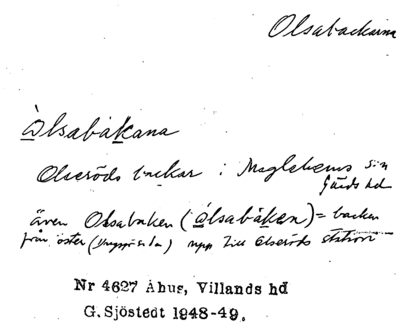 Olsabackarna
Òlsabàkana
Olseröds backar i Maglehems sn
Gärds hd
även Olsabaken (òlsabàken) = backen
från öster ( ) upp till Olseröds station
Nr 4627 Åhus, Villands hd
G. Sjöstedt 1948-49.